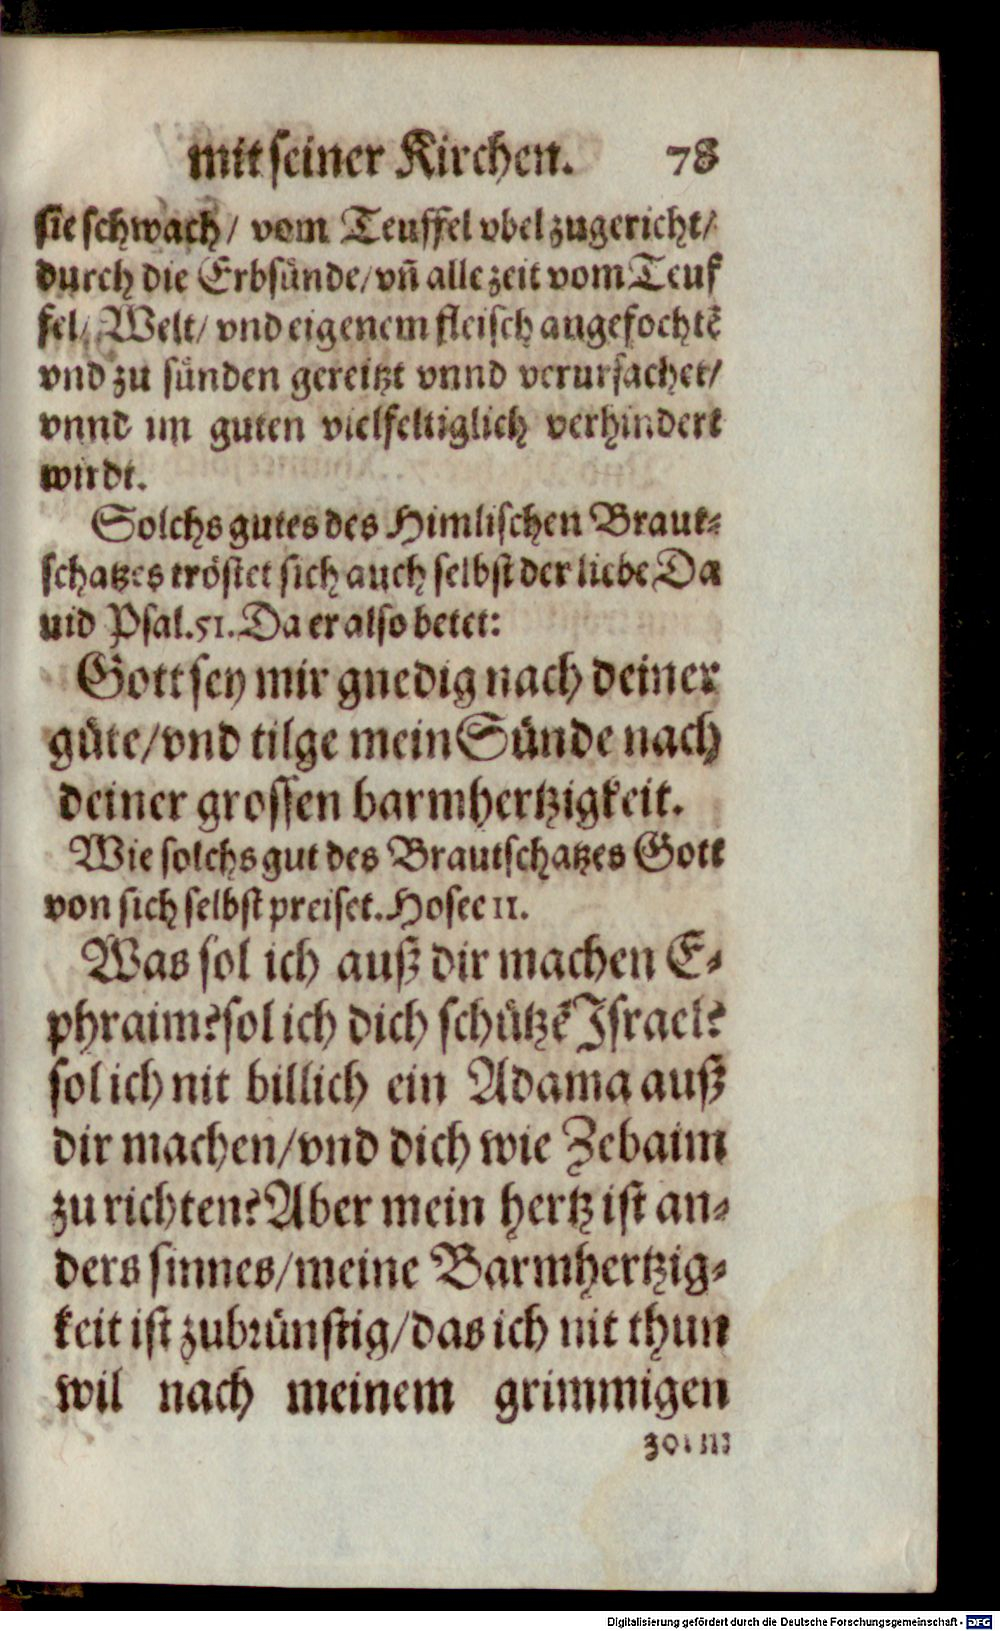 mit seiner Kirchen. 78
sie schwach/ vom Teuffel vbel zugericht/
durch die Erbsünde/ vñ alle zeit vom Teuf
fel/ Welt/ vnd eigenem fleisch angefochtẽ
vnd zu sünden gereitzt vnnd verursachet/
vnnd im guten vielfeltiglich verhindert
wirdt.
Solchs gutes des Himlischen Braut⸗
schatzes tröstet sich auch selbst der liebe Da
uid Psal. 51. Da er also betet:
Gott sey mir gnedig nach deiner
güte/ vnd tilge mein Sünde nach
deiner grossen barmhertzigkeit.
Wie solchs gut des Brautschatzes Gott
von sich selbst preiset. Hosee 11.
Was sol ich auß dir machen E⸗
phraim? sol ich dich schützẽ Israel?
sol ich nit billich ein Adama auß
dir machen/ vnd dich wie Zebaim
zu richten? Aber mein hertz ist an⸗
ders sinnes/ meine Barmhertzig⸗
keit ist zubrünstig/ das ich nit thun
wil nach meinem grimmigen
zorn
Digitalisierung gefördert durch die Deutsche Forschungsgemeinschaft - DFG